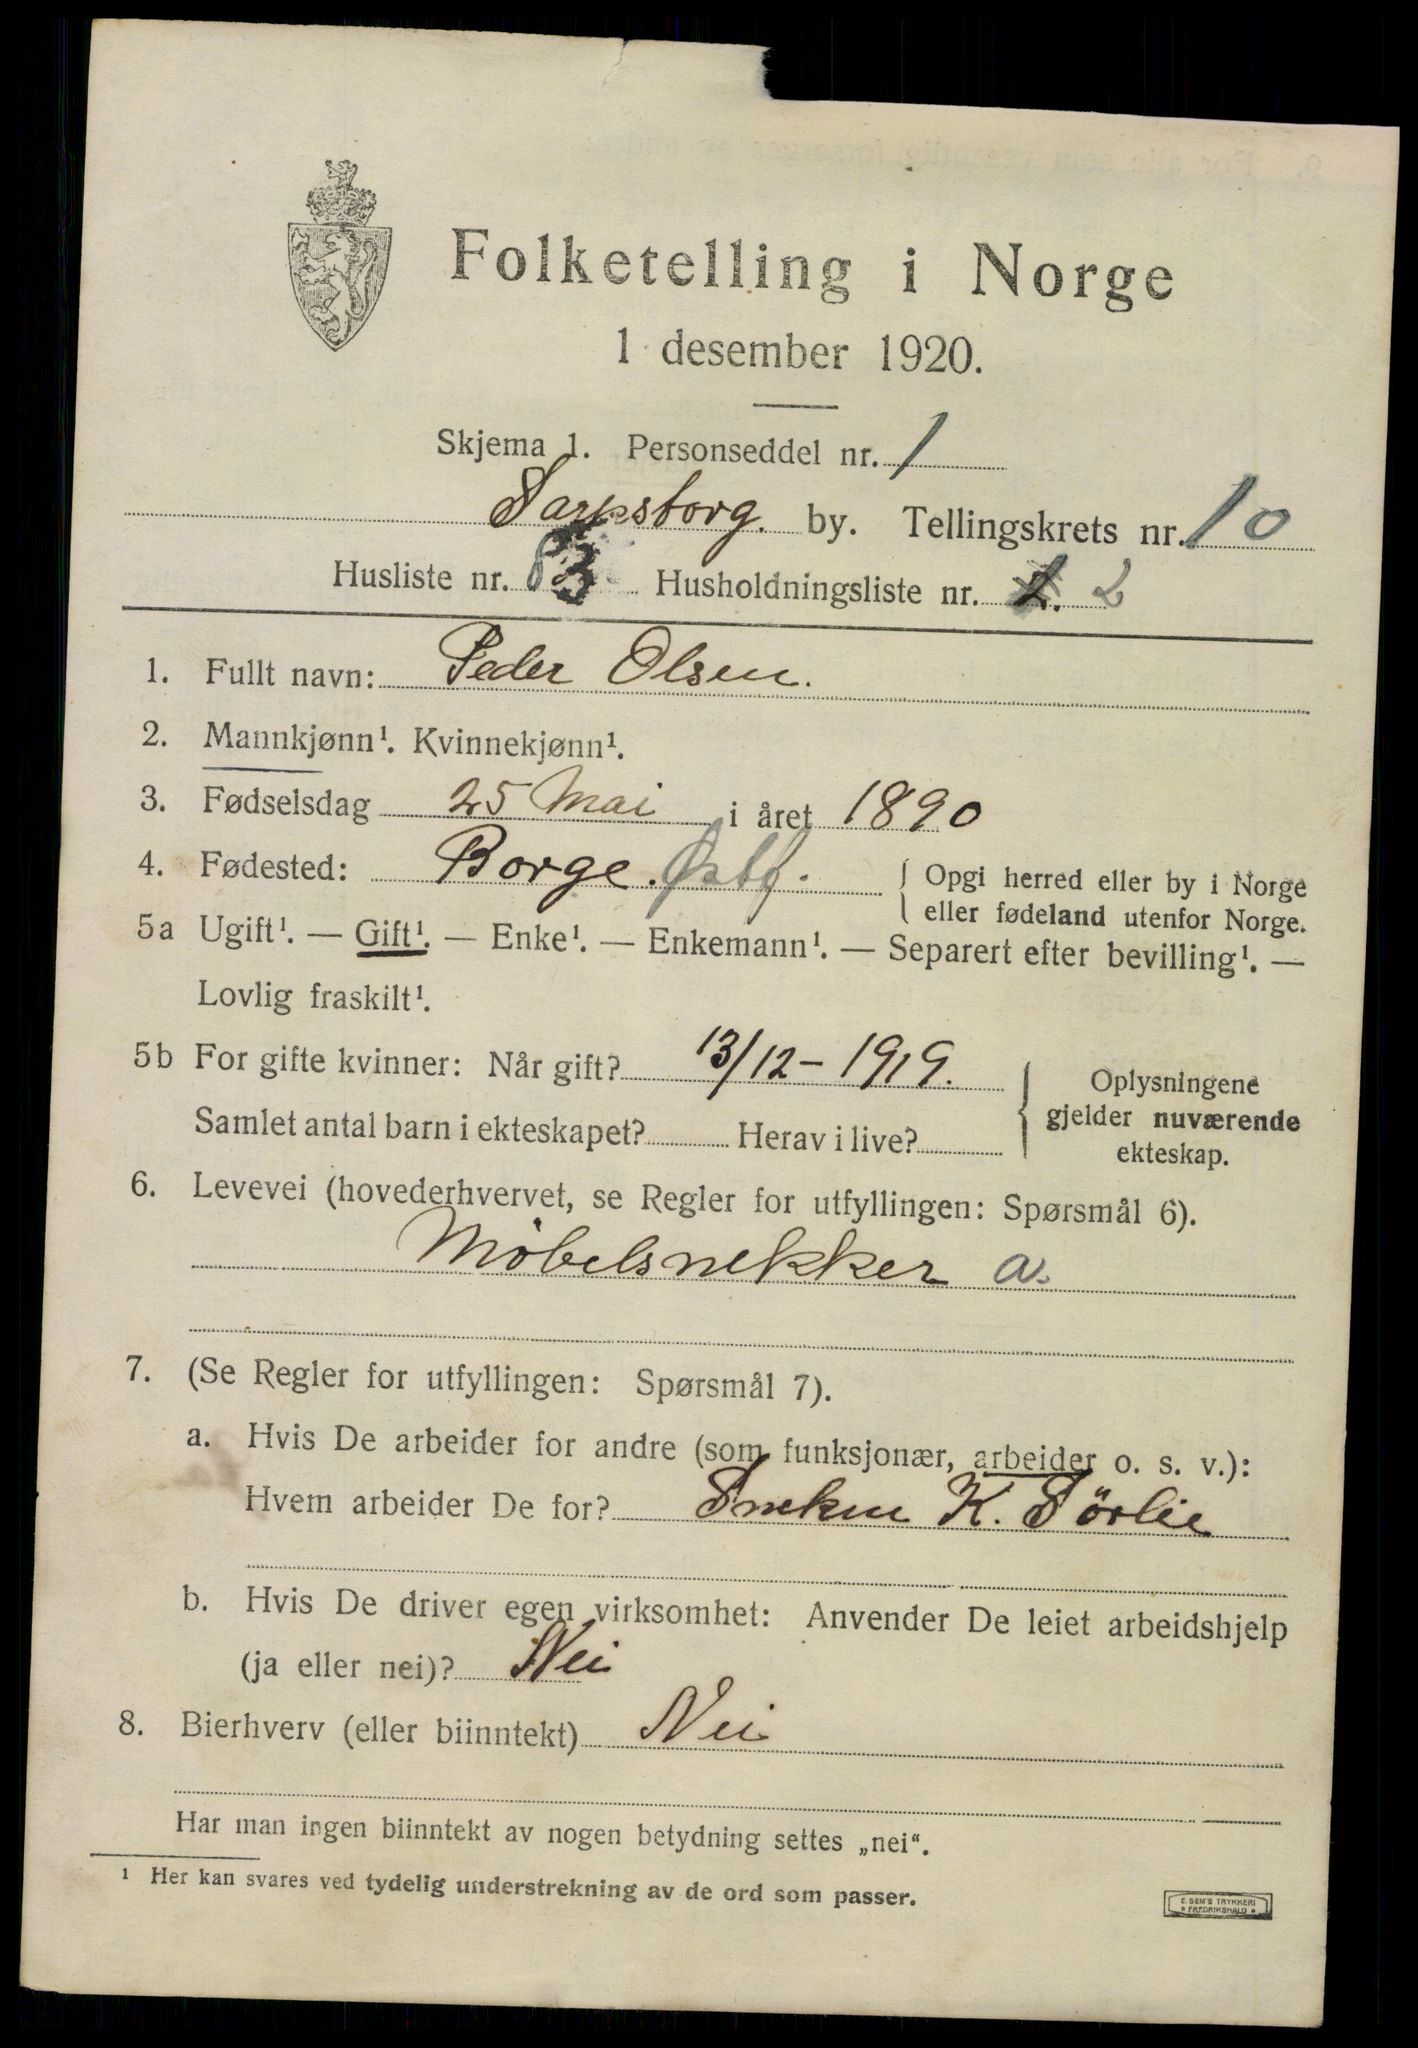 Folketelling i Norge
1 desember 1920.
Skjema 1. Personseddel nr. 1
Sarpsborg. by. Tellingskrets nr. 10
Husliste nr. 83 Husholdningsliste nr. 2
1. Fullt navn: Peder Olsen.
2. Mannkjønn¹. Kvinnekjønn¹.
3. Fødselsdag 25 Mai i året 1890
4. Fødested: Borge. Østf. { Opgi herred eller by i Norge
eller fødeland utenfor Norge.
5a Ugift¹. — Gift¹. — Enke¹. — Enkemann¹. — Separert efter bevilling¹. —
Lovlig fraskilt¹.
5b For gifte kvinner: Når gift? 13/12 – 1919. { Oplysningene
Samlet antal barn i ekteskapet? Herav i live? gjelder nuværende
ekteskap.
6. Levevei (hovederhvervet, se Regler for utfyllingen: Spørsmål 6).
Møbelsnekker a.
7. (Se Regler for utfyllingen: Spørsmål 7).
a. Hvis De arbeider for andre (som funksjonær, arbeider o. s. v.):
Hvem arbeider De for? K. Sørlie
b. Hvis De driver egen virksomhet: Anvender De leiet arbeidshjelp
(ja eller nei)? Nei
8. Bierhverv (eller biinntekt) Nei
Har man ingen biinntekt av nogen betydning settes „nei".
¹ Her kan svares ved tydelig understrekning av de ord som passer.
E. SEM'S TRYKKERI
• FREDRIKSHALD •